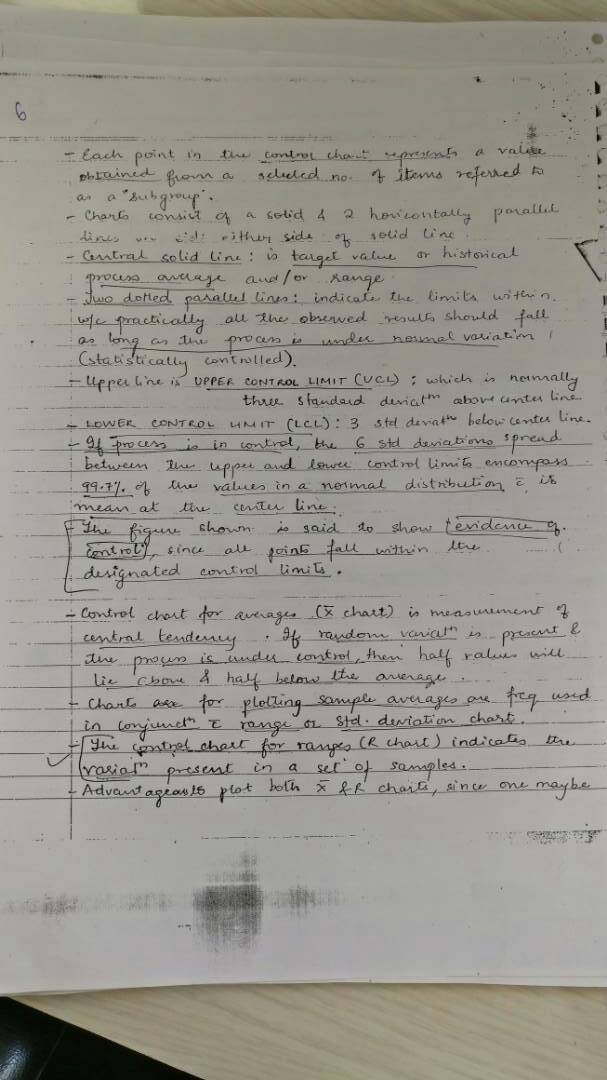 6
- Each point in the control chart represents a value
obtained from a selected no. of items referred to
as a "subgroup".
- Charts consist of a solid & 2 horizontally parallel
lines on either side of solid line.
- Central solid line : is target value or historical
process average and/or range
- Two dotted parallel lines : indicate the limits within
w/c practically all the observed results should fall
as long as the process is under normal variation
(statistically controlled).
- Upper line is UPPER CONTROL LIMIT (UCL) : which is normally
three standard deviatⁿ above center line
- LOWER CONTROL LIMIT (LCL) : 3 std deviatⁿ below center line.
- If process is in control, the 6 std deviations spread
between the upper and lower control limits encompass
99.7% of the values in a normal distribution c̄ is
mean at the center line.
- The figure shown is said to show 'evidence of
control', since all points fall within the
designated control limits.
- Control chart for averages (x̄ chart) is measurement of
central tendency. If random variatⁿ is present &
the process is under control, then half values will
lie above & half below the average.
- Charts for plotting sample averages are freq used
in conjunctⁿ c̄ range or std. deviation chart.
- The control chart for ranges (R chart) indicates the
variatⁿ present in a set of samples.
- Advantageous to plot both x̄ & R charts, since one maybe